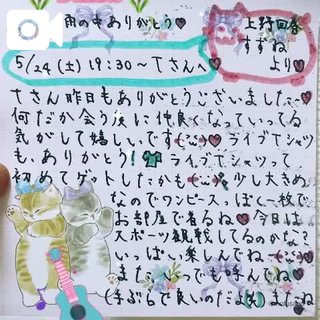 雨の中ありがとう♥
上野回春
すずね
より♥
5/24(土)19:30〜Tさんへ
Tさん昨日もありがとうございました♥
何だか会う度に仲良くなっていってる
気がして嬉しいです♥ライブTシャツ
も、ありがとう!ライブTシャツって
初めてゲットしたかも♥少し大きめ
なのでワンピースっぽく一枚で
お部屋で着るね♥今日は
スポーツ観戦してるのかな?
いっぱい楽しんでね♥
また、いつでも呼んでね♥
(手ぶらで良いのだよ)またね